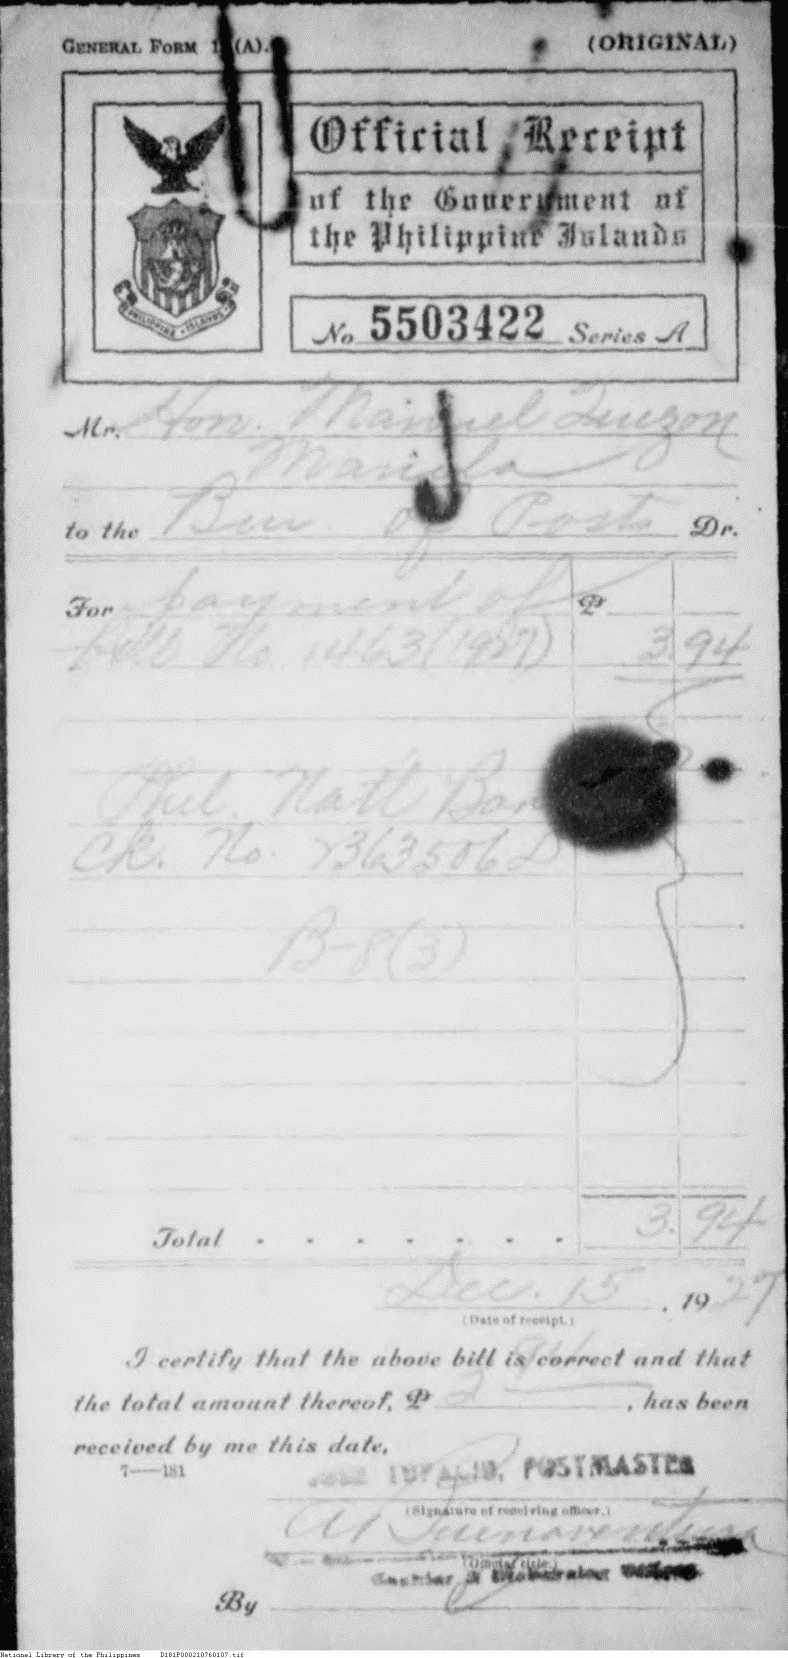 GENERAL FORM (A).
(ORIGINAL)
Official Receipt
of the Government of
the Philippine Islands
PHILIPPINE ISLANDS
No 5503422 Series A
Mr. Hon. Manuel Quezon
Manila
to the Bur. of Posts Dr.
For payment of ₱
bill No. 1463 (1927) 3.94
Phil. Nat'l Ban
Ck. No.
B-8(3)
Total . . . . . . . 3.94
Dec. 15, 1927
(Date of receipt.)
I certify that the above bill is correct and that
the total amount thereof, ₱ , has been
received by me this date.
7—181
POSTMASTER
(Signature of receiving officer.)
Buenaventura
(Official title.)
Cashier & Disbursing Officer
By
National Library of the Philippines D181P000210760107.tif